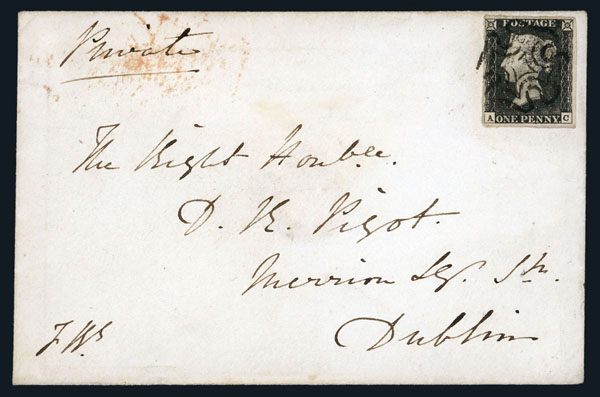 Private
POSTAGE
A ONE PENNY C
The Right Honble.
D. R. Pigot.
Merrion Sqr. Sth.
Dublin